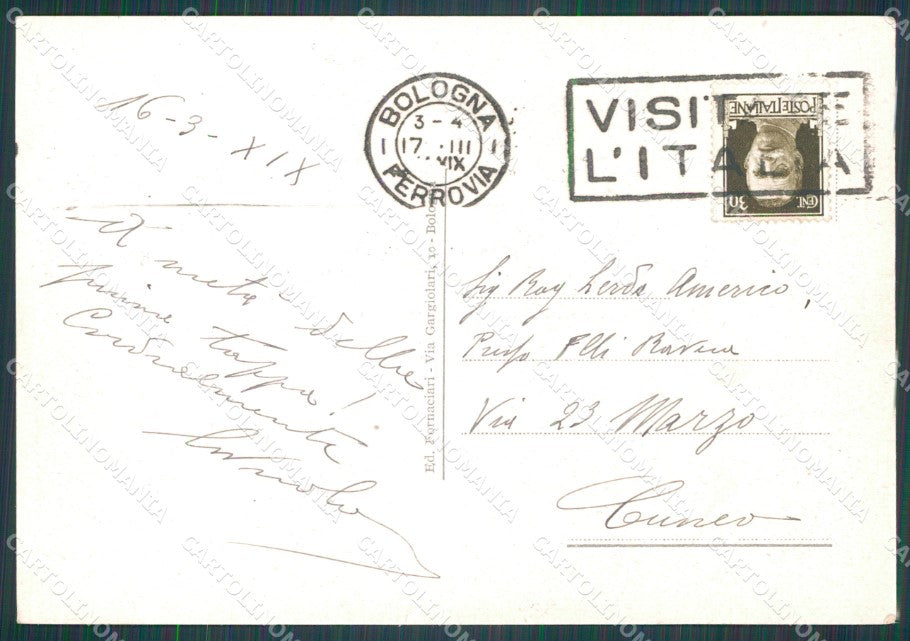 16-3-XIX
A metà della
prima tappa!
Cordialmente
BOLOGNA
3-4
17 III
XIX
FERROVIA
VISITATE
L'ITALIA
POSTE ITALIANE
CENT. 30
Ed. Fornaciari - Via Gargiolari, 10 - Bolo
Sig Rag Lerda Americo,
Presso Flli Ravera
Via 23 Marzo
Cuneo
CARTOLINOMANIA